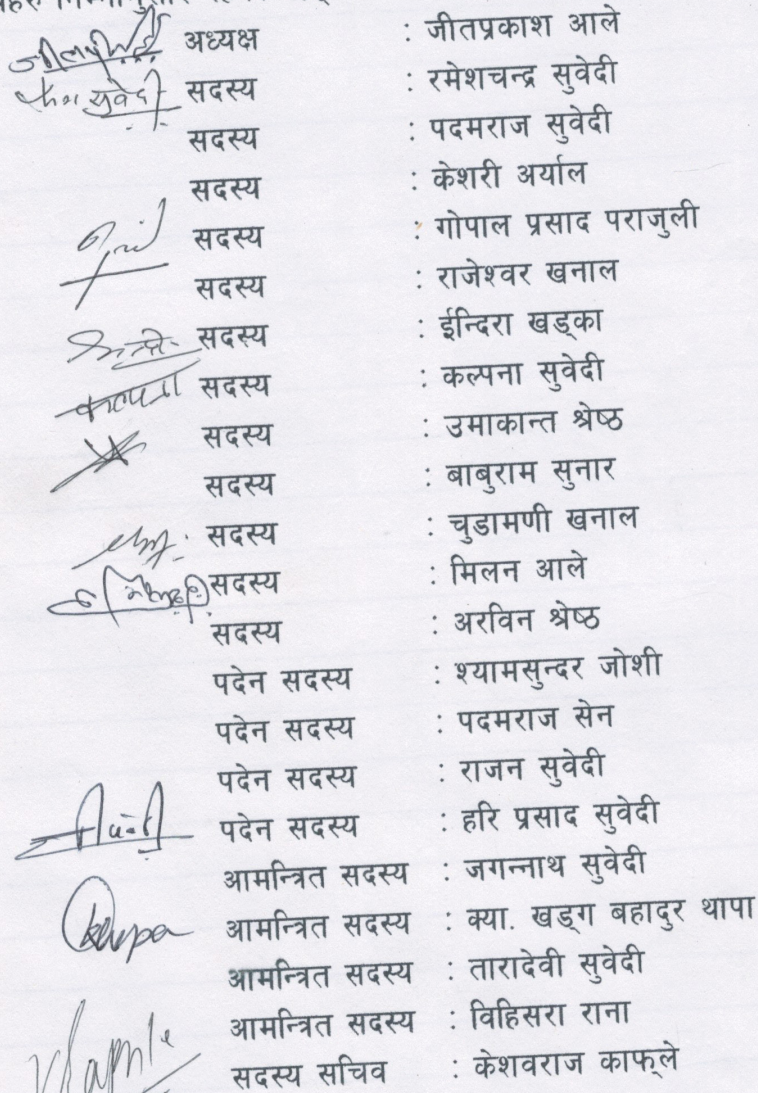 अध्यक्ष : जीतप्रकाश आले
सुवेदी सदस्य : रमेशचन्द्र सुवेदी
सदस्य : पदमराज सुवेदी
सदस्य : केशरी अर्याल
सदस्य : गोपाल प्रसाद पराजुली
सदस्य : राजेश्वर खनाल
सदस्य : ईन्दिरा खड्का
कल्पना सदस्य : कल्पना सुवेदी
सदस्य : उमाकान्त श्रेष्ठ
सदस्य : बाबुराम सुनार
सदस्य : चुडामणी खनाल
सदस्य : मिलन आले
सदस्य : अरविन श्रेष्ठ
पदेन सदस्य : श्यामसुन्दर जोशी
पदेन सदस्य : पदमराज सेन
पदेन सदस्य : राजन सुवेदी
पदेन सदस्य : हरि प्रसाद सुवेदी
आमन्त्रित सदस्य : जगन्नाथ सुवेदी
आमन्त्रित सदस्य : क्या. खड्ग बहादुर थापा
आमन्त्रित सदस्य : तारादेवी सुवेदी
आमन्त्रित सदस्य : विहिसरा राना
सदस्य सचिव : केशवराज काफ्ले